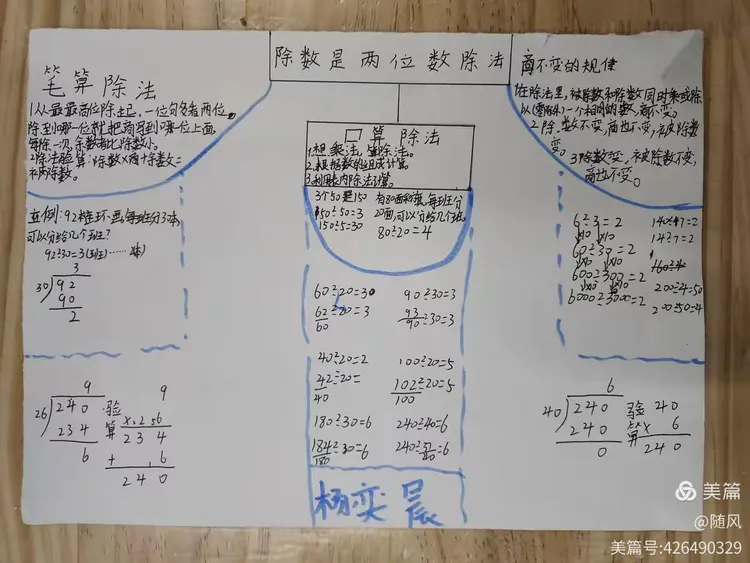 除数是两位数除法
笔算除法
1.从最高位除起,一位可多看两位,
除到哪一位就把商写到哪一位上面,
每除一次,余数都比除数小。
2.除法验算:除数×商+余数=
被除数。
立例:92本连环画,每班分3本,
可以分给几个班?
92÷30=3(班)……
3
30 92
90
2
9
26 240
234
6
验算
9
×26
234
+ 6
240
口算除法
1.想乘法,算除法。
2.根据数的组成计算。
3.利用表内除法计算。
3个50是150
150÷50=3
150÷5=30
有80面彩旗,每班分
20面,可以分给几个班。
80÷20=4
60÷20=30
62÷20=3
60
90÷30=3
93÷30=3
90
40÷20=2
42÷20=
40
100÷20=5
102÷20=5
100
180÷30=6
184÷30=6
180
240÷40=6
240÷ =6
杨奕晨
商不变的规律
1在除法里,被除数和除数同时乘或除
以(零除外)一个相同的数,商不变。
2.除数不变,商也不变,被除数
变。
3除数变,被除数不变,
商也不变。
6÷3=2
×10 ×10
60÷30=2
×10 ×10
600÷300=2
×10 ×10
6000÷3000=2
140÷7=2
14÷7=2
200÷4=50
200÷50=4
6
40 240
240
0
验算
40
× 6
240
美篇
@随风
美篇号:426490329